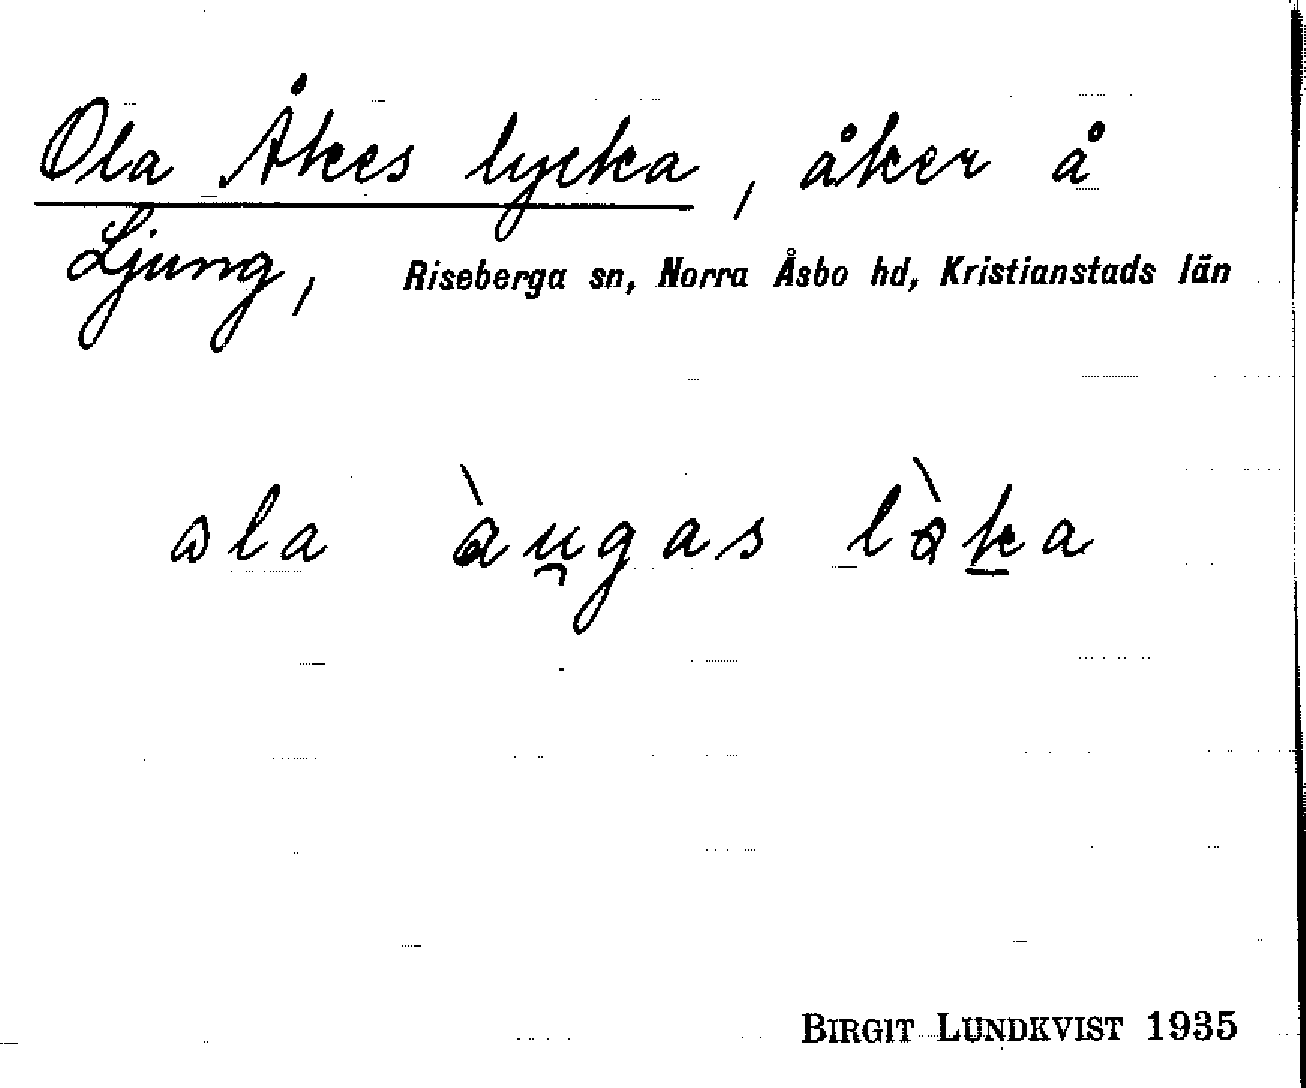 Ola Åkes lycka, åker å
Ljung, Riseberga sn, Norra Åsbo hd, Kristianstads län
ala àu̯gas lòk̠a
BIRGIT LUNDKVIST 1935